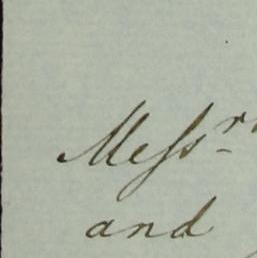 Meſsrs
and